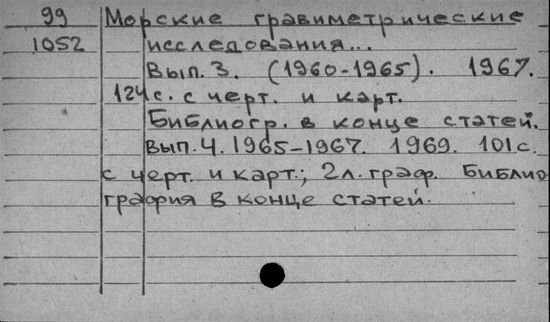 99 Морские гравиметрические
1052 исследования...
Вып. 3. (1960-1965). 1967.
124с. с черт. и карт.
Библиогр. в конце статей.
Вып. 4. 1965-1967. 1969. 101с.
с черт. и карт.; 2л. граф. Библио
графия в конце статей.